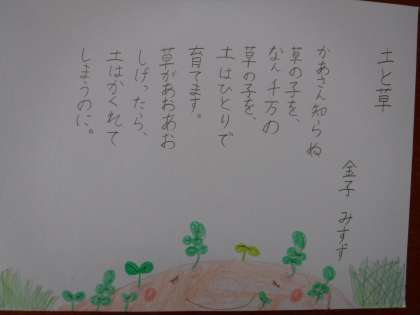 土と草
金子 みすず
かあさん知らぬ
草の子を、
なん千万の
草の子を、
土はひとりで
育てます。
草があおあお
しげったら、
土はかくれて
しまうのに。